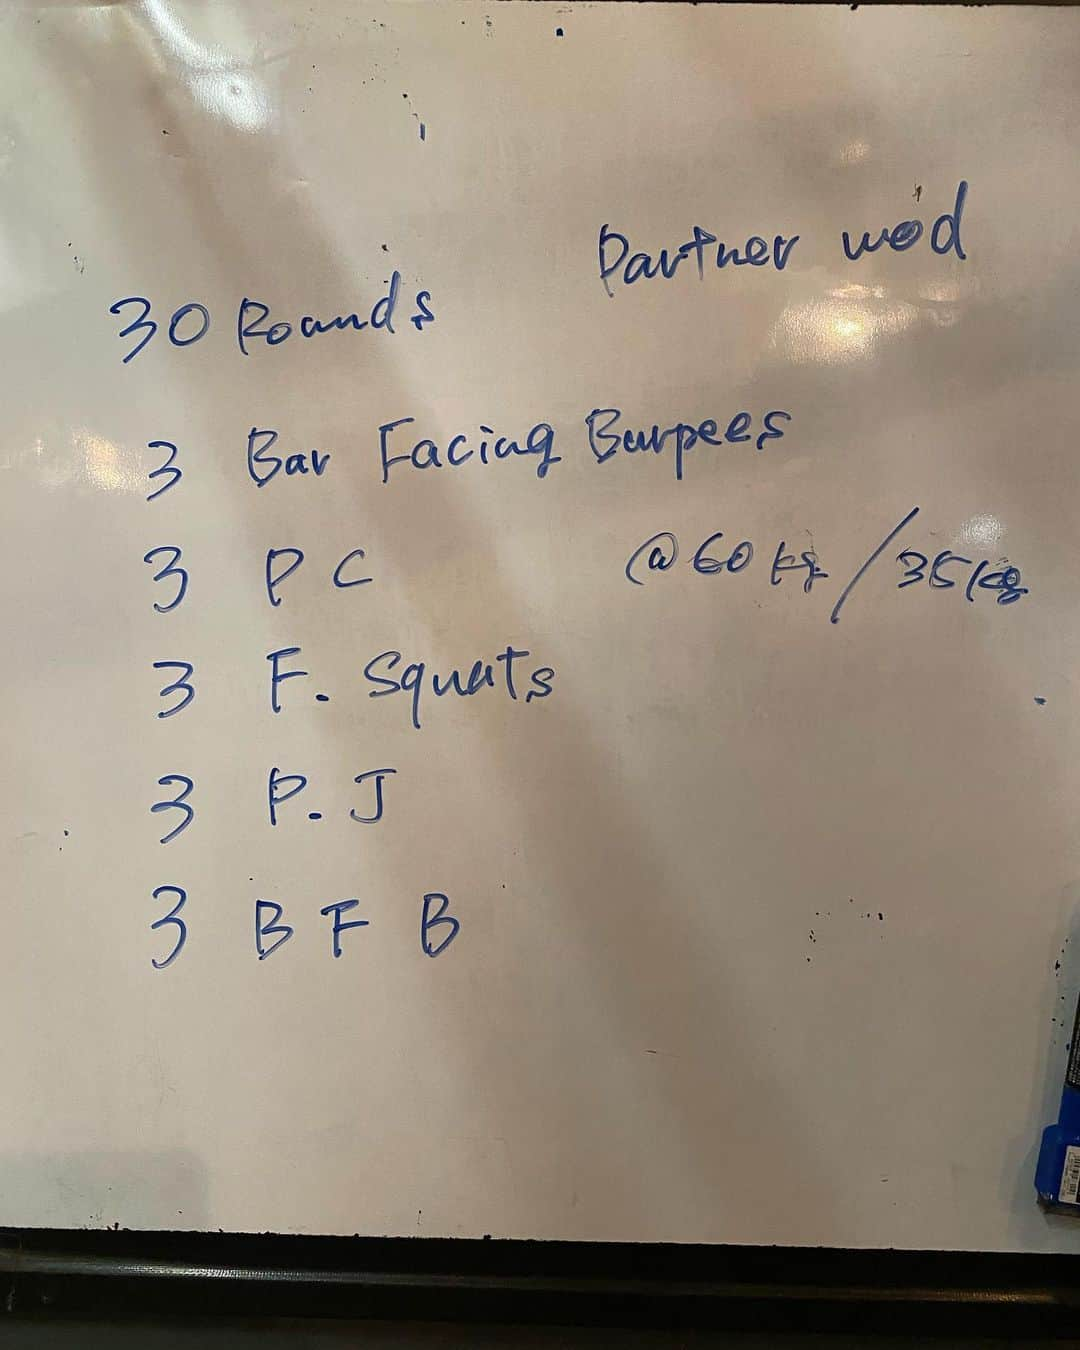 Partner wod
30 Rounds
3 Bar Facing Burpees
3 P C @60kg/35kg
3 F. Squats
3 P. J
3 B F B